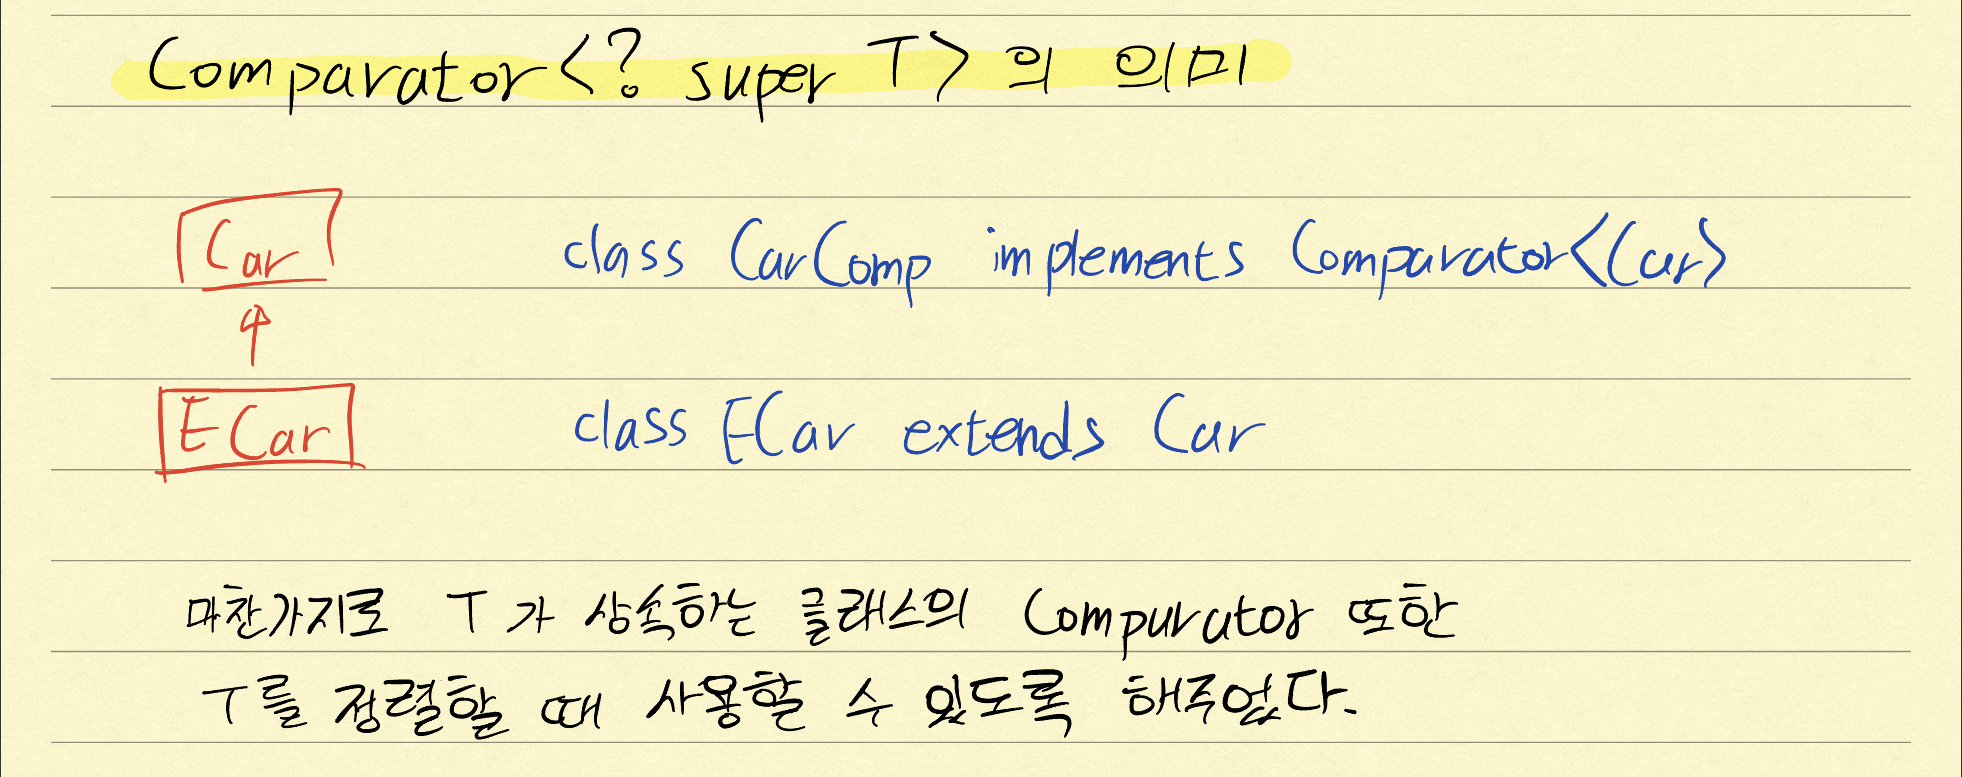 Comparator<? super T>의 의미
Car
class CarComp implements Comparator<Car>
ECar
class ECar extends Car
마찬가지로 T가 상속하는 클래스의 Comparator 또한
T를 정렬할 때 사용할 수 있도록 해주었다.